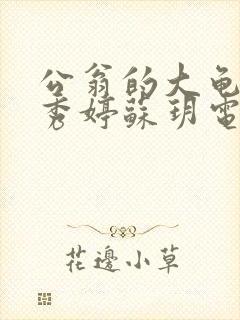 公翁的大龟
秀婷蘇玥電
花邊小草